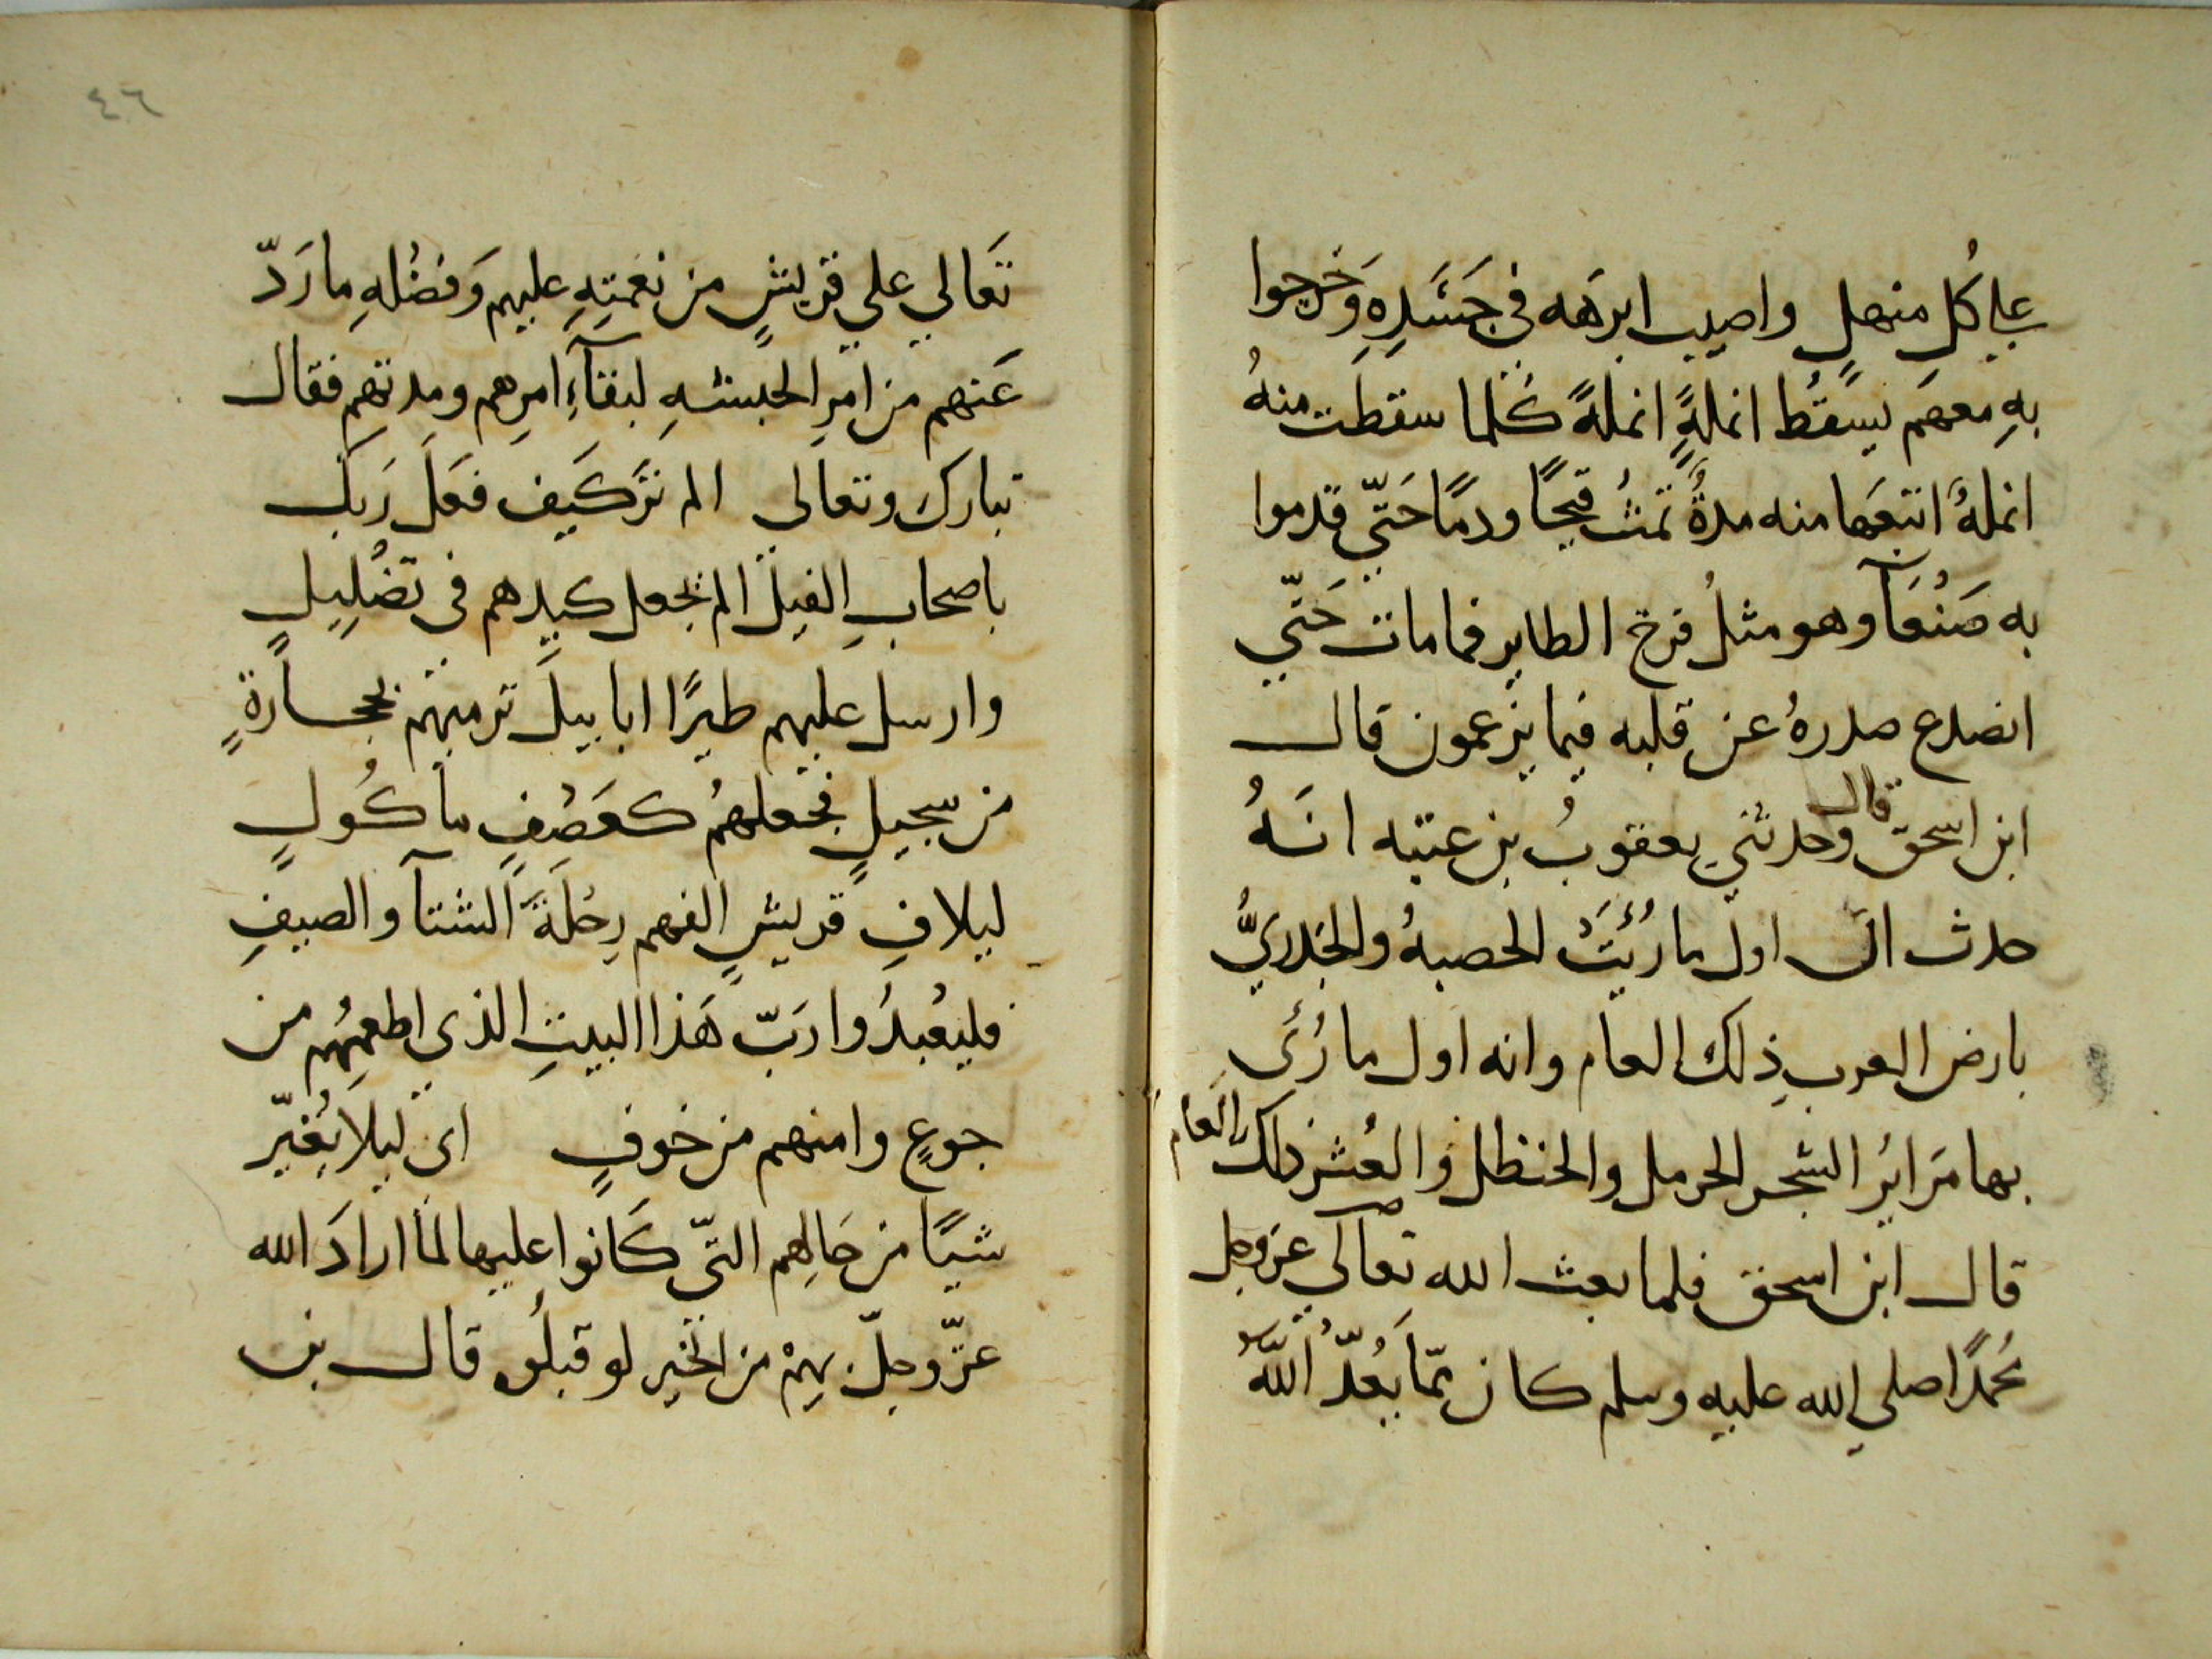 علي كُلِ منهلٍ واصيب ابرهَه في جَسَدِهِ وَخرجوا
بهِ معهَم يسقُط انملةً انملةً كُلما سقطت منهُ
انملهٌ اتبعَها منه مدةٌ تمثُ قيحًا ودمًا حَتّي قدموا
به صَنْعَآ وهو مثلُ فرخ الطاير فما مات حَتّي
انصدع صدرهُ عن قلبه فيما يزعمون قال
ابن اسحق قال وحدثني يعقوبُ بن عتبه انَهُ
حدث ان اول ما رُئيَتْ الحصبهُ والجدريُّ
بارض العرب ذلك العام وانه اول ما رُئَى
بها مَرايرُ الشجر الحرمل والحنظل والعُشر ذلك العام
قال ابن اسحق فلما بعث الله تعالي عز وجل
مُحمدًا صلي الله عليه وسلم كان ممّا يَعُدّ اللهُ
٤٦
تَعَالي علي قريشٍ من نعمتِهِ عليهم وَفضْلهِ ما رَدّ
عَنهم من امرِ الحبشهِ لبقآءِ امرِهم ومدتهم فقال
تبارك وتعالى الم تَرَ كَيف فعَلَ رَبك
باصحابِ الفيل الم يجعل كيدهم في تضْلِيلٍ
وارسل عليهم طيرًا ابابيلَ ترميهم بحجارةٍ
من سجيلٍ فجعلهُم كعَصْفٍ مأكُولٍ
ليلافِ قريشٍ الفهم رِحْلَةَ الشتآ والصيفِ
فليعْبدُوا رَبّ هَذا البيتِ الذي اطعمهُم من
جوعٍ وامنهم من خوفٍ اى ليلا يُغيّر
شيًا من حَالِهم التّي كَانوا عليها لمآ ارادَ الله
عزّ وجلّ بهِمْ من الخير لو قبلُوه قال بن